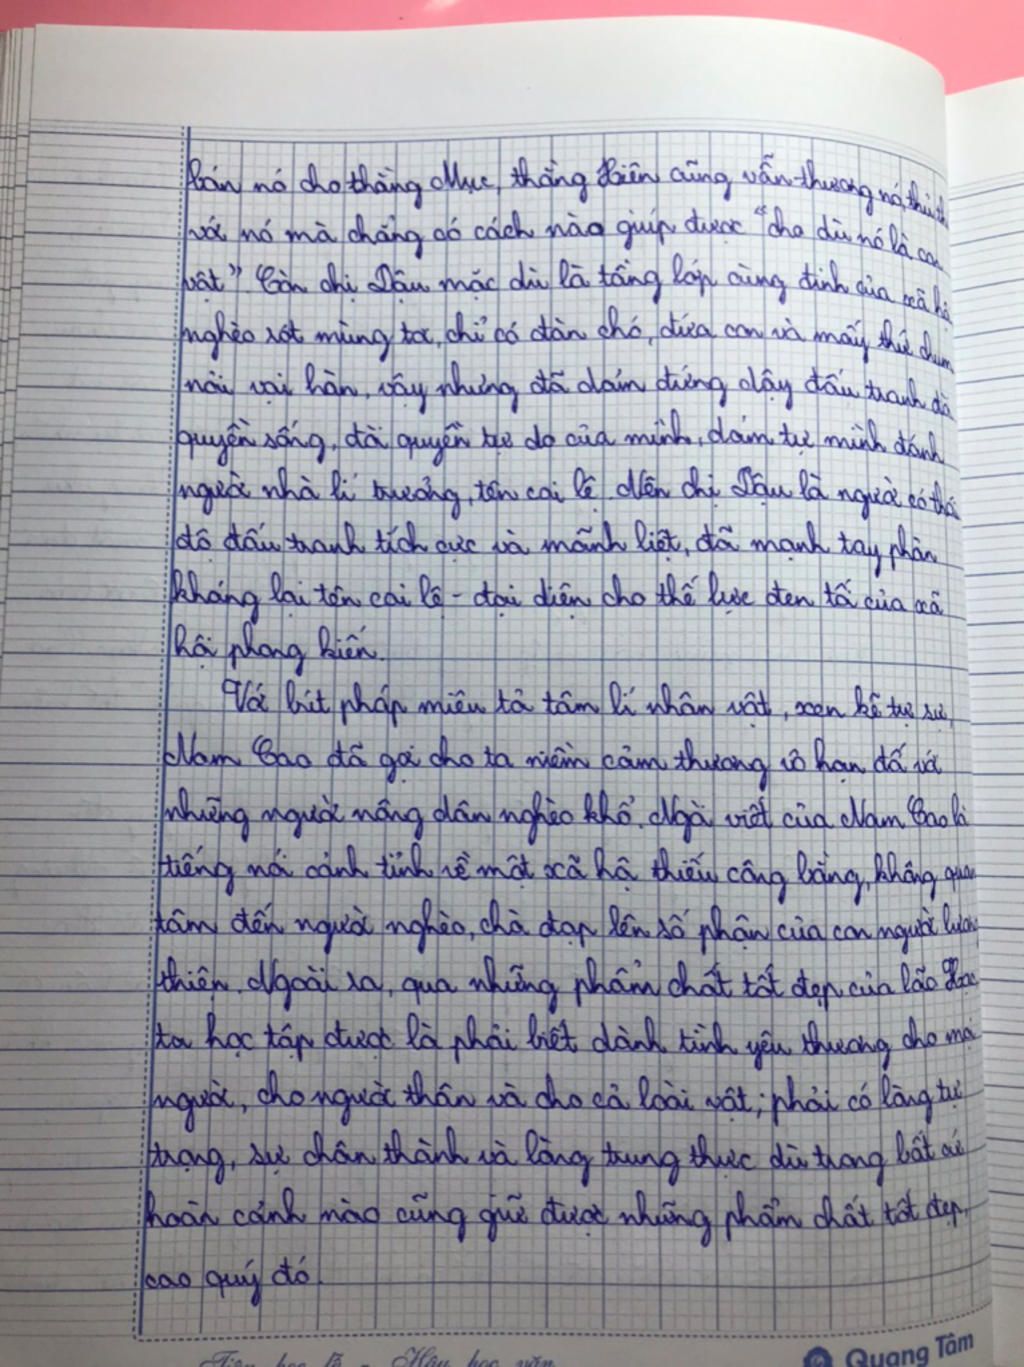 bán nó cho thằng Mục, thằng Xiên cũng vẫn thương nó,
với nó mà chẳng có cách nào giúp được "cho dù nó là con
vật". Còn chị Dậu mặc dù là tầng lớp cùng đinh của xã hội
nghèo rớt mùng tơ, chỉ có đàn chó, đứa con và mấy thứ chum
nồi vại hàn, vậy nhưng đã dám đứng dậy đấu tranh đòi
quyền sống, đòi quyền tự do của mình, dám tự mình đánh
người nhà lí trưởng, tên cai lệ. Nên chị Dậu là người có thái
độ đấu tranh tích cực và mãnh liệt, đã mạnh tay phản
kháng lại tên cai lệ - đại diện cho thế lực đen tối của xã
hội phong kiến.
Với bút pháp miêu tả tâm lí nhân vật, xen kẽ tự sự,
Nam Cao đã gợi cho ta niềm cảm thương vô hạn đối với
những người nông dân nghèo khổ. Ngòi viết của Nam Cao là
tiếng nói cảnh tỉnh về một xã hội thiếu công bằng, không quan
tâm đến người nghèo, chà đạp lên số phận của con người lương
thiện. Ngoài ra, qua những phẩm chất tốt đẹp của lão Hạc,
ta học tập được là phải biết dành tình yêu thương cho mọi
người, cho người thân và cho cả loài vật; phải có lòng tự
trọng, sự chân thành và lòng trung thực dù trong bất cứ
hoàn cảnh nào cũng giữ được những phẩm chất tốt đẹp,
cao quý đó.
Tiên học lễ - Hậu học văn
Quang Tâm